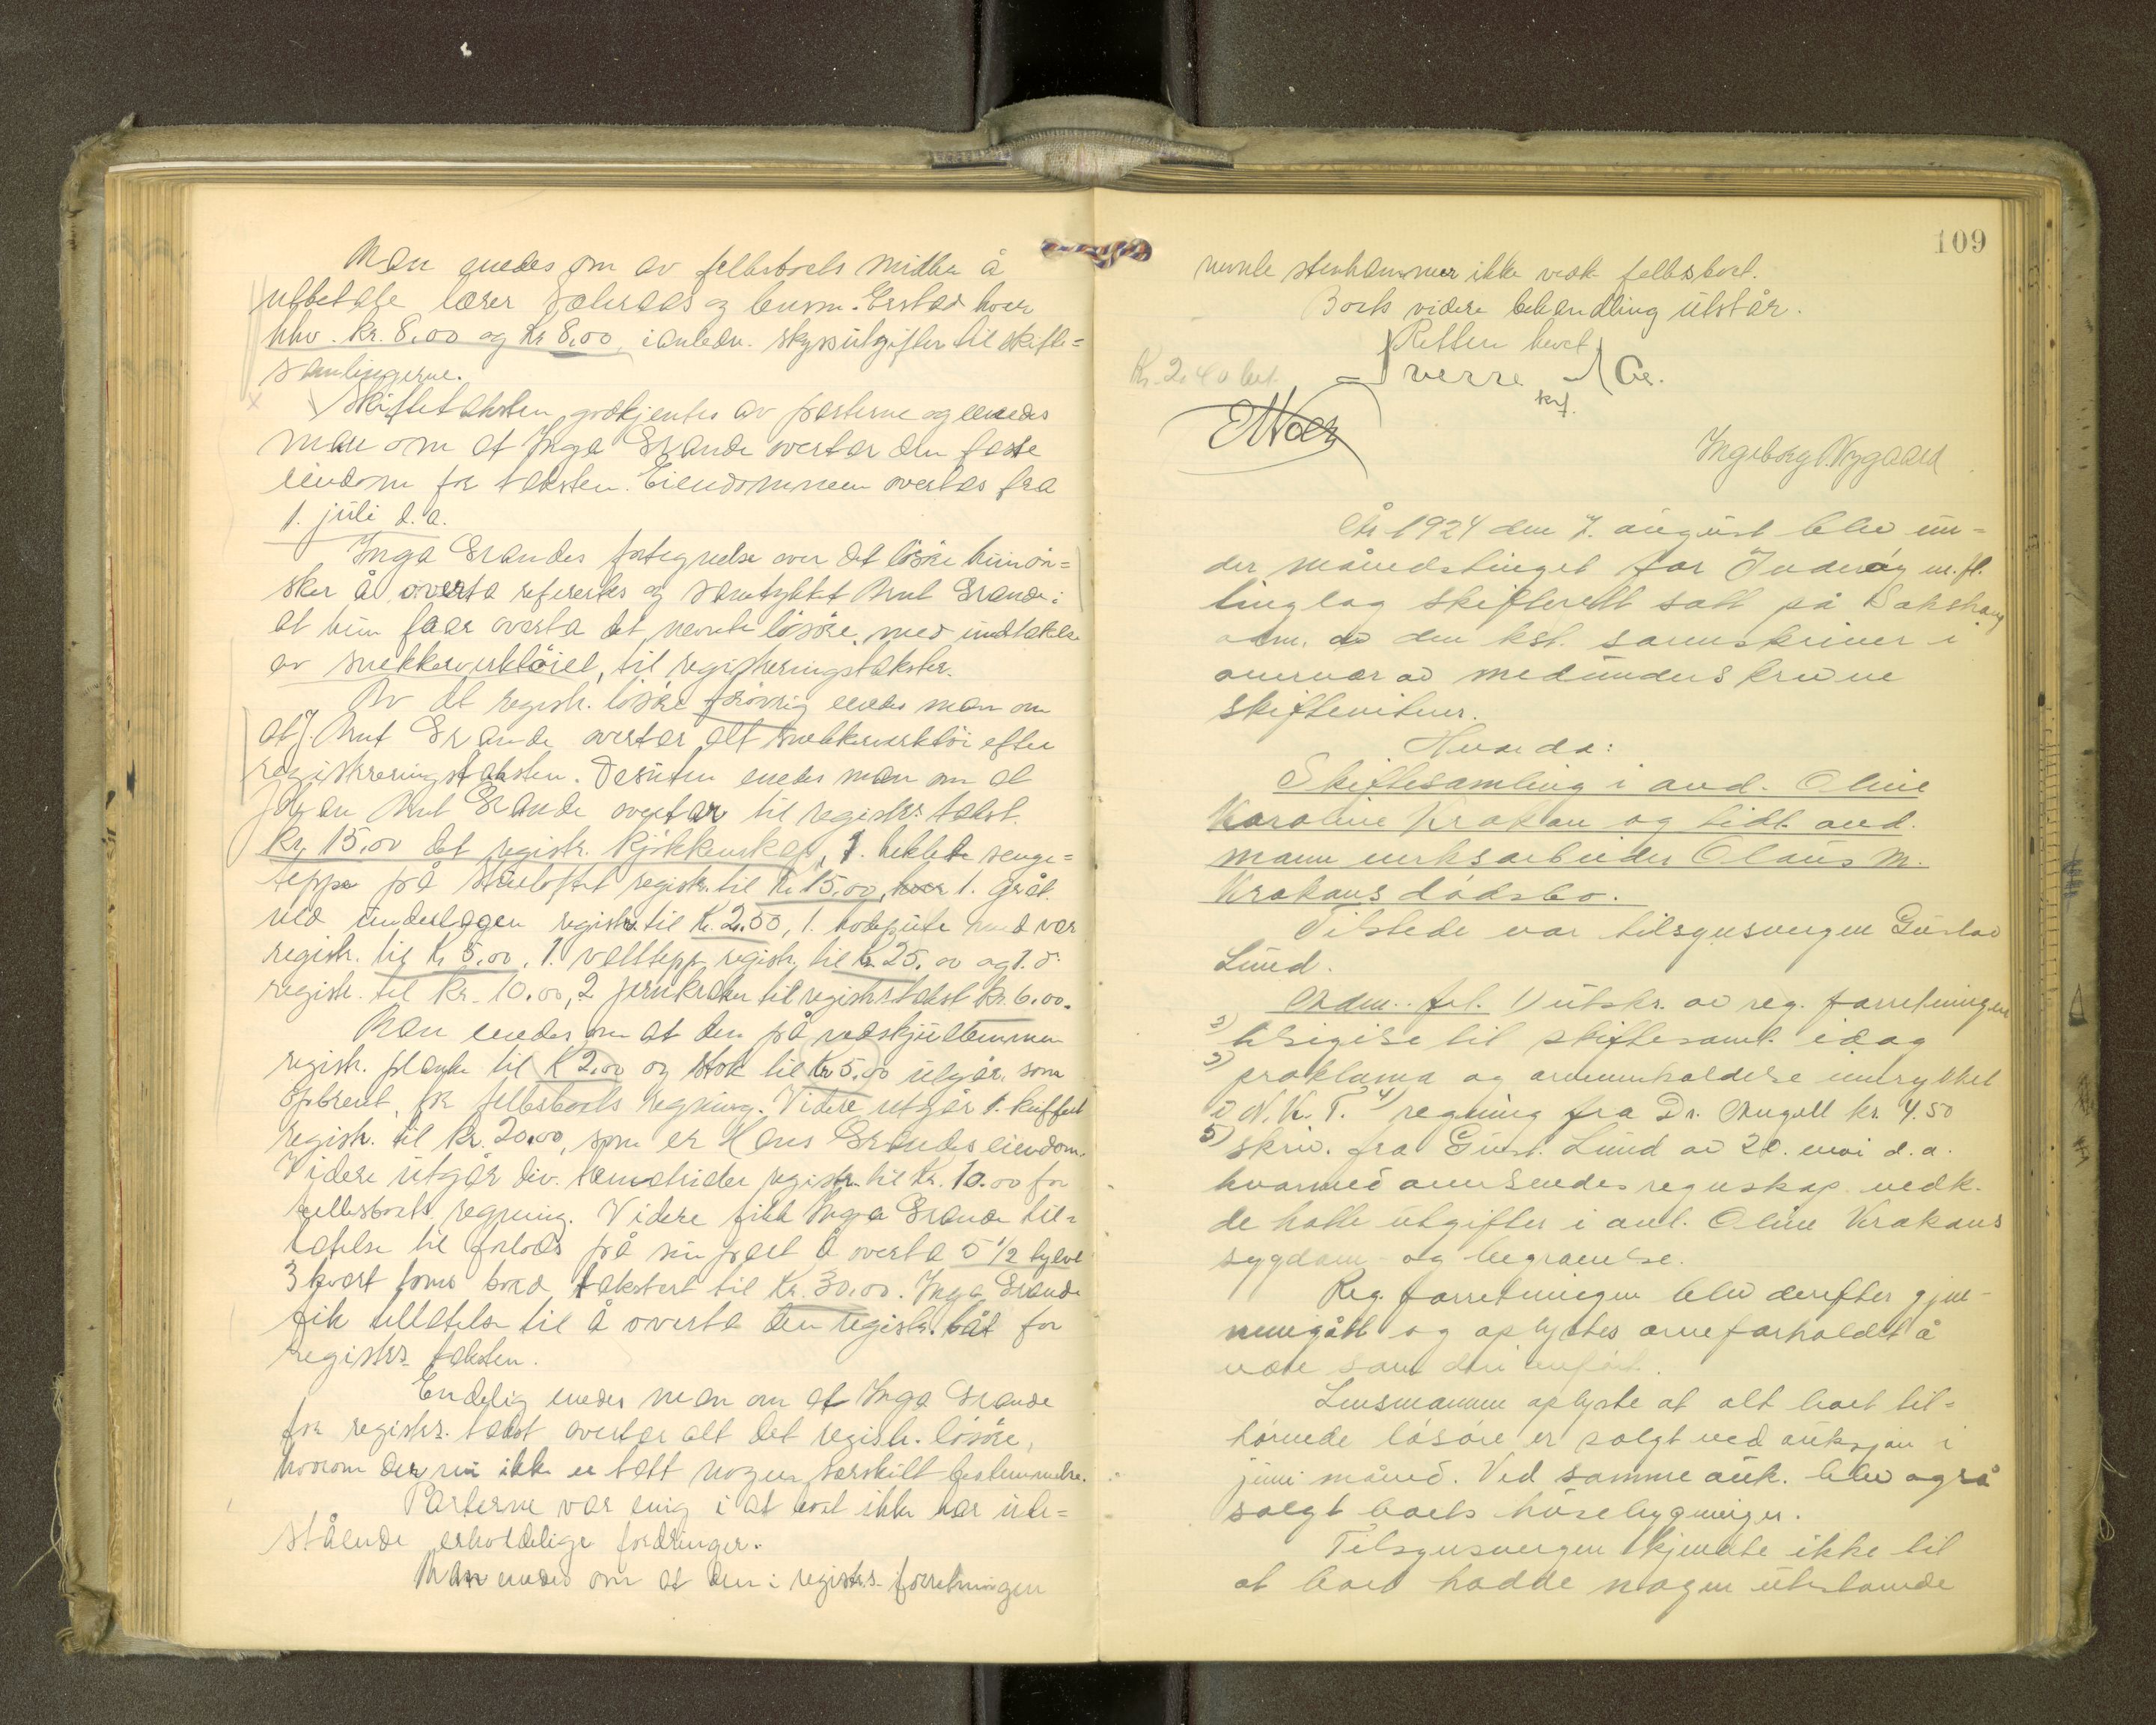 Man enedes om av fellesboets midler å
utbetale lærer og lensm. Erstad hver
hhv. kr. 8,00 og kr 8,00 i anledn. skyssutgifter til skifte=
samlingerne.
Skiftetaksten godkjentes av parterne og enedes
man om at Inga Grande overtar den faste
eiendom for taksten. Eiendommen overtas fra
1. juli d.a.
Inga Grandes fortegnelse over det løsøre hun øn=
sker å overta refertes og samtykket Knut Grande i
at hun faar overta det nevnte løsøre, med undtakelse
av snekkerverktøiet, til registreringstakster.
Av det registr. løsøre forøvrig enedes man om
at J. Knut Grande overtar alt snekkerverktøi efter
registreringstaksten. Desuten enedes man om at
Johan Knut Grande overtar til registr. takst
kr. 15,00 det registr. kjøkkenskap, 1. heklet senge=
teppe på stueloftet registr. til kr. 15,00, 1. gråt
ved underlagen registr. til kr. 2.50, 1. hodepute med var
registr. til kr 5,00, 1. vatteppe registr. til kr. 25,00 og 1. d.
registr. til kr. 10.00, 2 jernkraker til registr. takst kr. 6.00.
Man enedes om at den på vedskjultømmen
registr. planke til kr 2,00 og stok til kr 5,00 utgår som
opbrent for fellesboets regning. Videre utgår 1. kuffert
registr. til kr. 20,00, som er Hans Grandes eiendom.
Videre utgår div. registr. til kr. 10.00 for
fellesboets regning. Videre fikk Inga Grande til=
latelse til forlods på sin part å overta 5 1/2 tylvt
3 kvart toms bord takstert til kr. 30.00. Inga Grande
fik tillatelse til å overta den registr. båt for
registr. taksten.
Endelig enedes man om at Inga Grande
for registr. takst overtar alt det registr. løsøre,
hvorom der nu ikke er tatt nogen særskilt bestemmelse.
Parterne var enig i at boet ikke har ute=
stående erholdelige fordringer.
Man enedes om at den i registr. forretningen
109
nevnte stenhammer ikke vedk. fellesboet.
Boets videre behandling utstår.
Retten hevet
Kr. 2.40 bet.
Sverre Ge.
skf.
Ingeborg Nygaard
År 1924 den 7. august blev un=
der månedstinget for Inderøy m.fl.
tinglag skifterett satt på Sakshaug
adm. av den kst. sorenskriver i
overvær av medunderskrevne
skiftevitner.
Hvorda:
Skiftesamling i avd. Oline
Karoline Krokan og tidl. avd.
mann verksarbeider Olaus M.
Krokans dødsbo.
Tilstede var tilsynsvergen Gustav
Lund.
Adm. frl. 1) utskr. av reg. forretningen
2) tilsigelse til skiftesaml. idag
3) proklama og arveinnkaldelse inrykket
i N.K.T. 4) regning fra Dr. Angell kr. 4.50
5) skriv. fra Gust. Lund av 20. mai d.a.
hvormed oversendes regnskap vedk.
de hatte utgifter i anl. Oline Krokans
sygdom og begravelse.
Reg. forretningen blev derefter gjen-
nemgått og oplystes arveforholdet å
være som deri anført.
Lensmannen oplyste at alt boet til-
hørende løsøre er solgt ved auksjon i
juni måned. Ved samme auk. blev også
solgt boets husebygninger.
Tilsynsvergen kjendte ikke til
at boet hadde nogen utestående